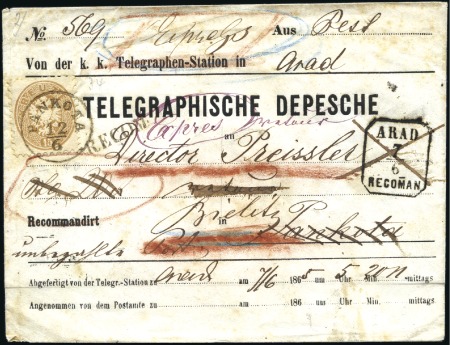 No 569 Expresso Aus Pest
Von der k. k. Telegraphen-Station in Arad
TELEGRAPHISCHE DEPESCHE
PANKOTA
12
6
RECOM
Expres retour
an
Director Preissler
ARAD
7
6
RECOMAN
Recommandirt
Bielitz
in Pankota
Abgefertigt von der Telegr.-Station zu Arad am 7/6 1865 5 Uhr 20 Min. mittags
Angenommen von dem Postamte zu am 186 um Uhr Min. mittags